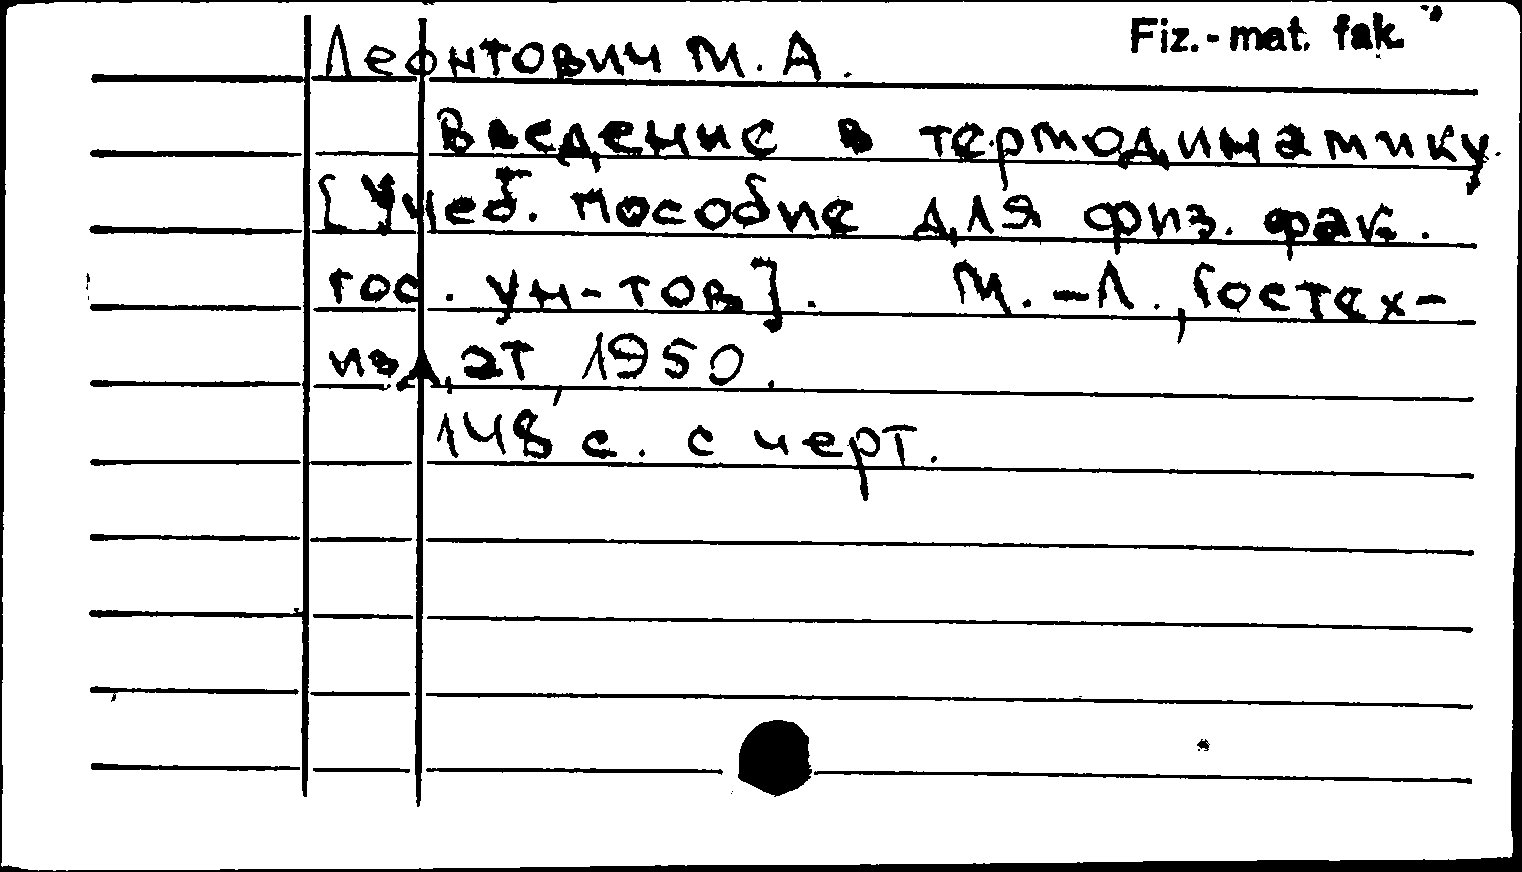 Fiz.-mat. fak.
Леонтович М. А.
Введение в термодинамику.
[Учеб. пособие для физ. фак.
гос. ун-тов]. М.-Л., Гостех-
издат, 1950.
148 с. с черт.